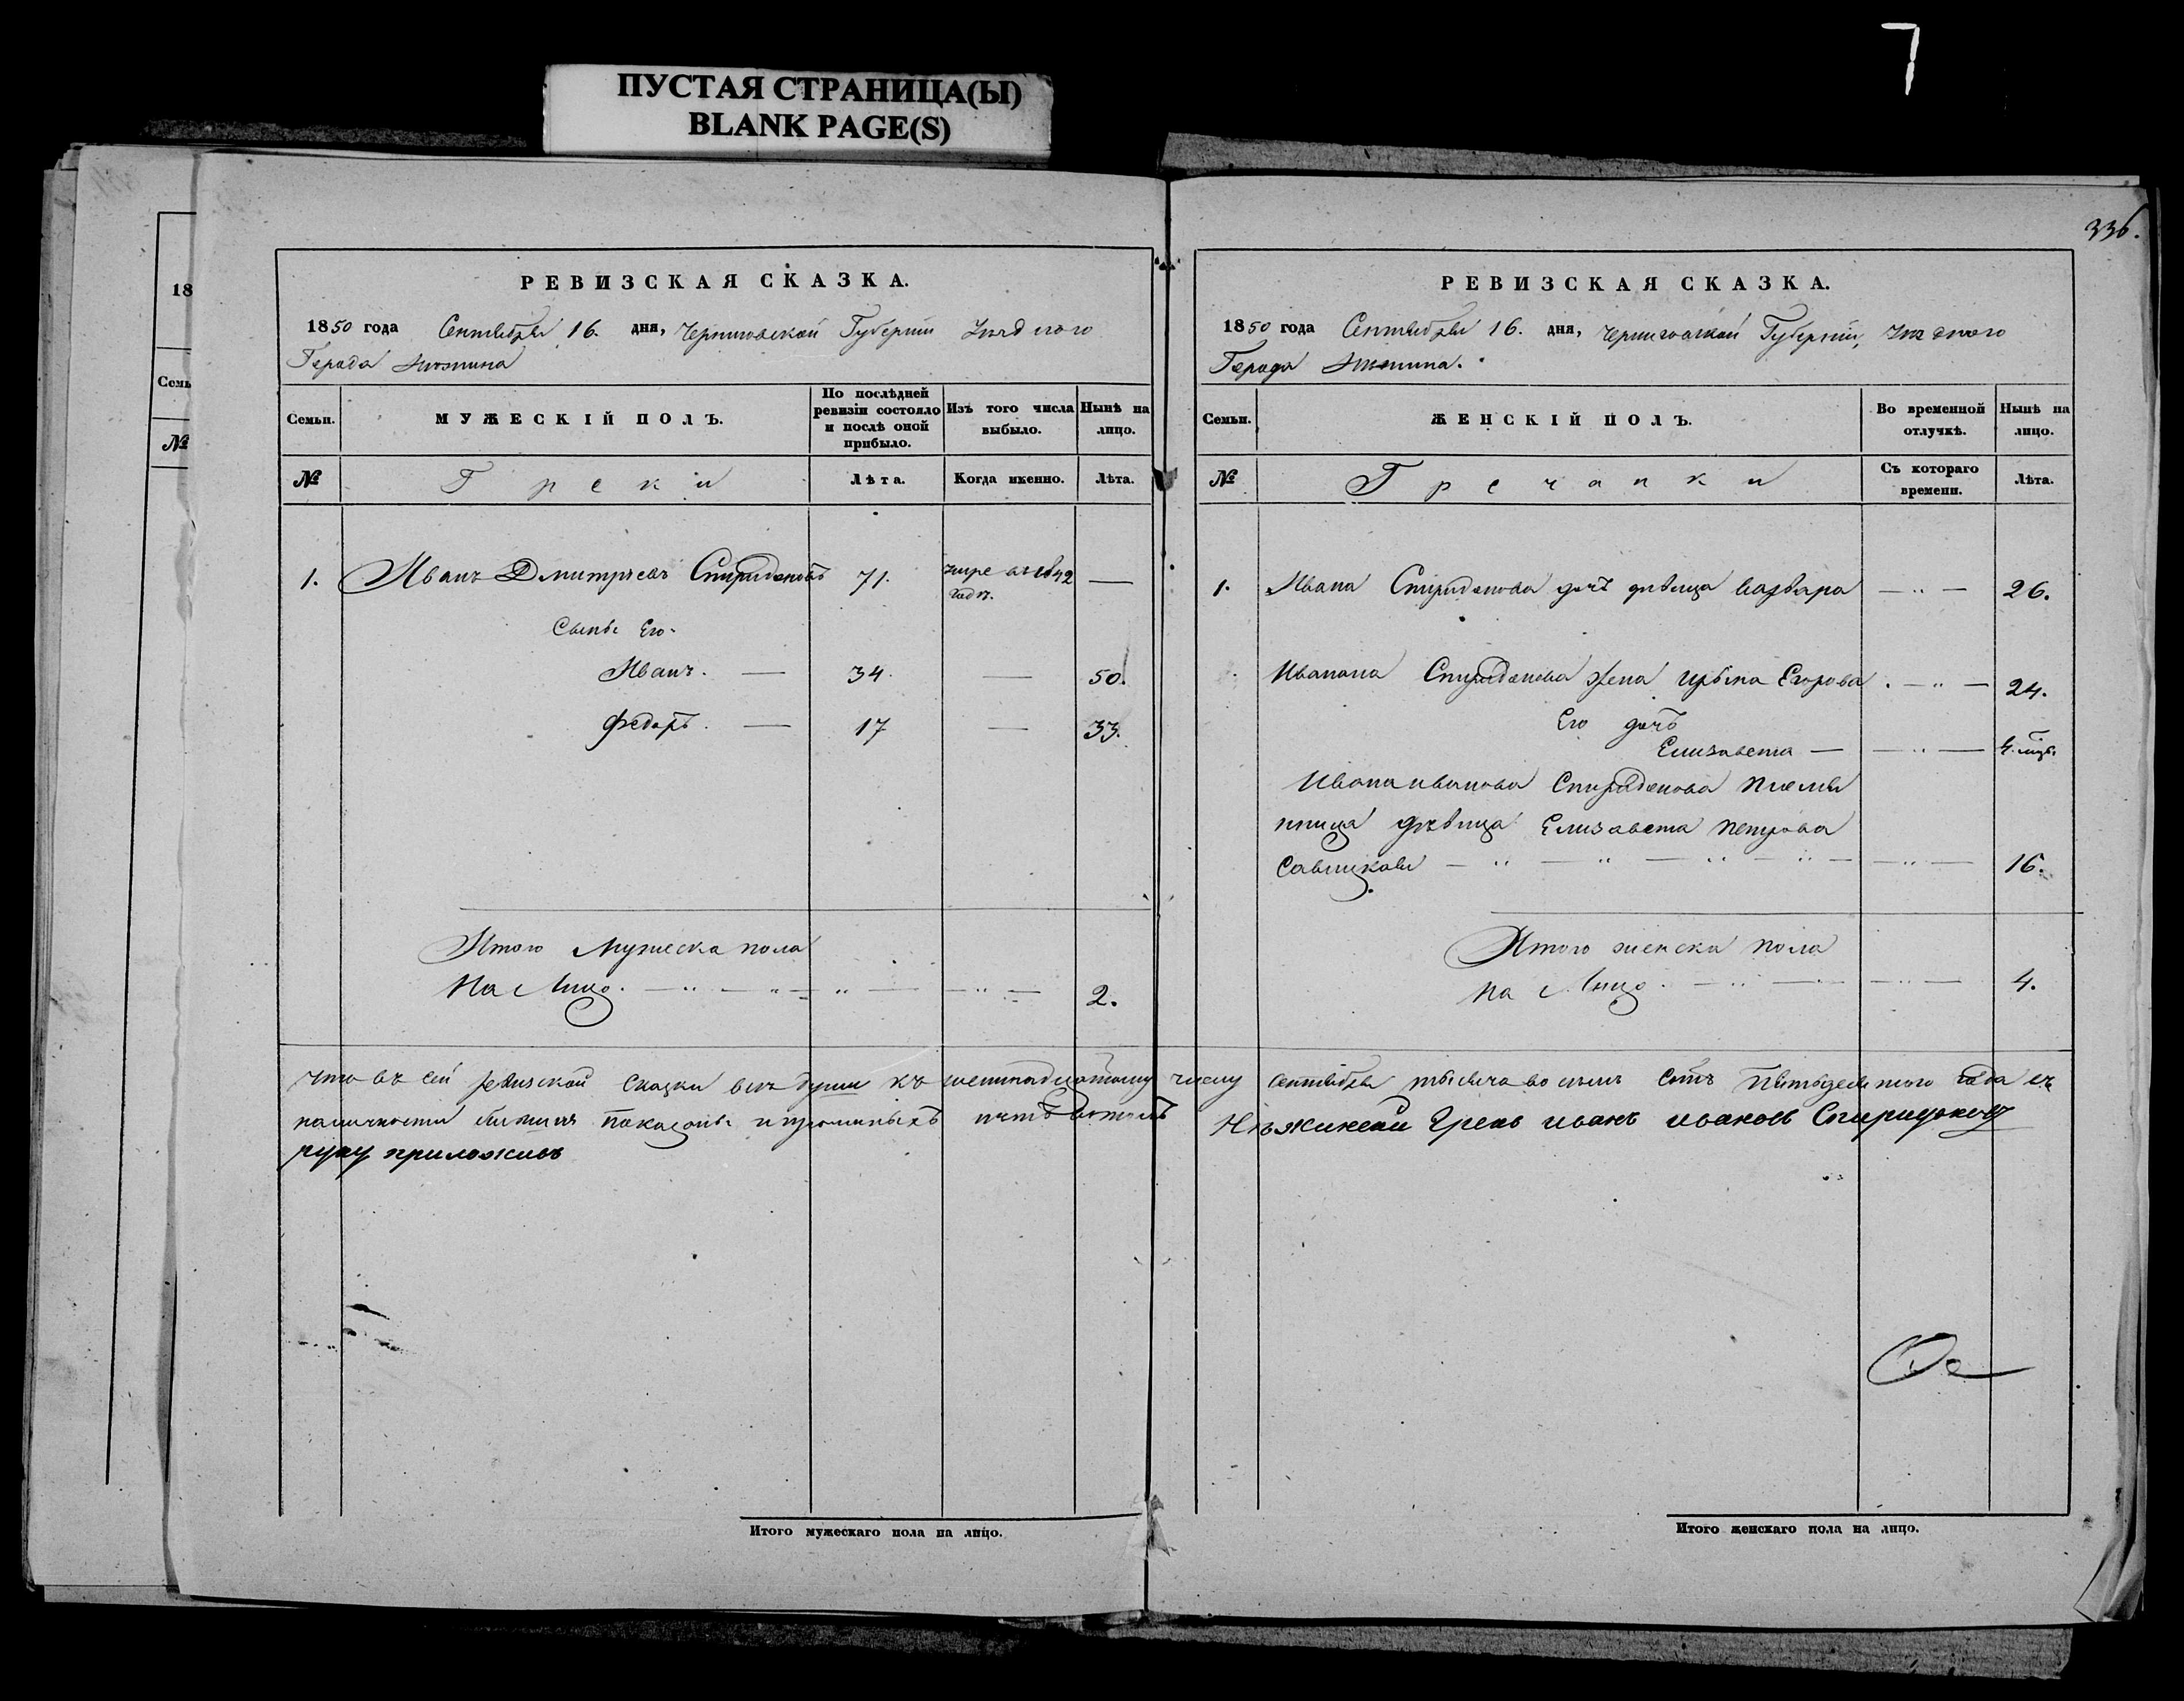 7
ПУСТАЯ СТРАНИЦА(Ы)
BLANK PAGE(S)
18
Семь
№
РЕВИЗСКАЯ СКАЗКА.
1850 года Сентября 16. дня, Черниговской Губернiи Уѣзднаго
Города Нѣжина
Семьи.
МУЖЕСКIЙ ПОЛЪ.
По послѣдней ревизiи состояло и послѣ оной прибыло.
Изъ того числа выбыло.
Нынѣ на лицо.
№
Греки
Лѣта.
Когда именно.
Лѣта.
1. Иванъ Дмитрiевъ Спиридоновъ 71. умре въ 1842 —
годѣ.
Сыны Его.
Иванъ. — 34. — 50.
Федоръ. — 17 — 33.
Итого Мужеска пола
На Лицо. 2.
336.
РЕВИЗСКАЯ СКАЗКА.
1850 года Сентября 16. дня, Черниговской Губернiи, Уѣзднаго
Города Нѣжина.
Семьи.
ЖЕНСКIЙ ПОЛЪ.
Во временной отлучкѣ.
Нынѣ на лицо.
№
Гречанки
Съ котораго времени.
Лѣта.
1. Ивана Спиридонова дочь дѣвица Варвара — " — 26.
Ивана Спиридонова жена Ирина Егорова. — " — 24.
Его дочь
Елизавета — — " —
Ивана Иванова Спиридонова Племя
нница дѣвица Елизавета Петрова
— " — 16.
Итого женска пола
на Лицо. 4.
Что въ сей ревизской сказки всѣ души къ шестнадцатому числу Сентября тысяча восемь сотъ Пятьдесятого года въ
наличности бывшiя показаны и прописныхъ нѣтъ въ томъ Нѣжинскiй Грекъ иванъ ивановъ Спиридоновъ
руку приложилъ
Итого мужескаго пола на лицо.
Итого женскаго пола на лицо.